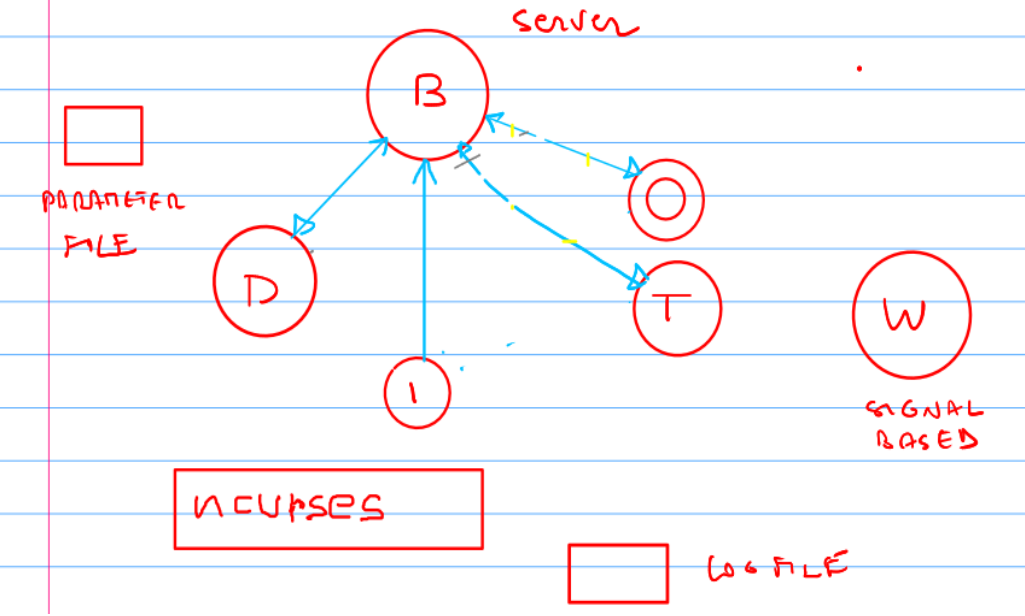 Server
B
PARAMETER
FILE
D
O
T
W
I
SIGNAL
BASED
ncurses
LOG FILE